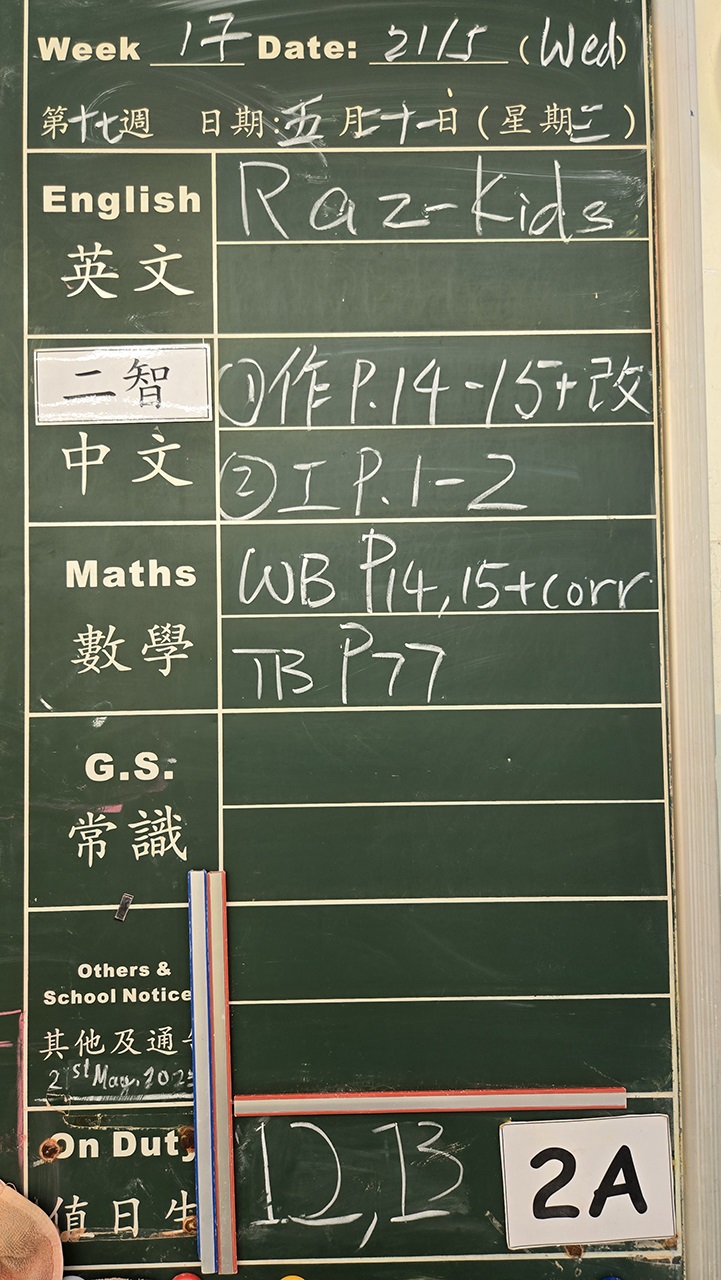 Week 17 Date: 21/5 (Wed)
第十七週 日期:五月二十一日(星期三)
English Raz-Kids
英文
二智 ①作 P.14-15+改
中文 ②工 P.1-2
Maths WB P14,15+corr
數學 TB P77
G.S.
常識
Others &
School Notice
其他及通告
21st May, 2025
On Duty D, B
值日生 2A